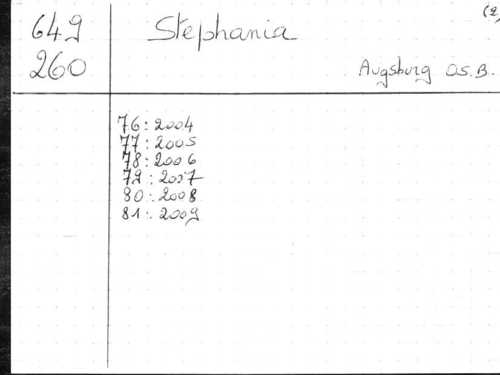 649 Stephania (2)
260 Augsburg O.S.B.
76: 2004
77: 2005
78: 2006
79: 2007
80: 2008
81: 2009